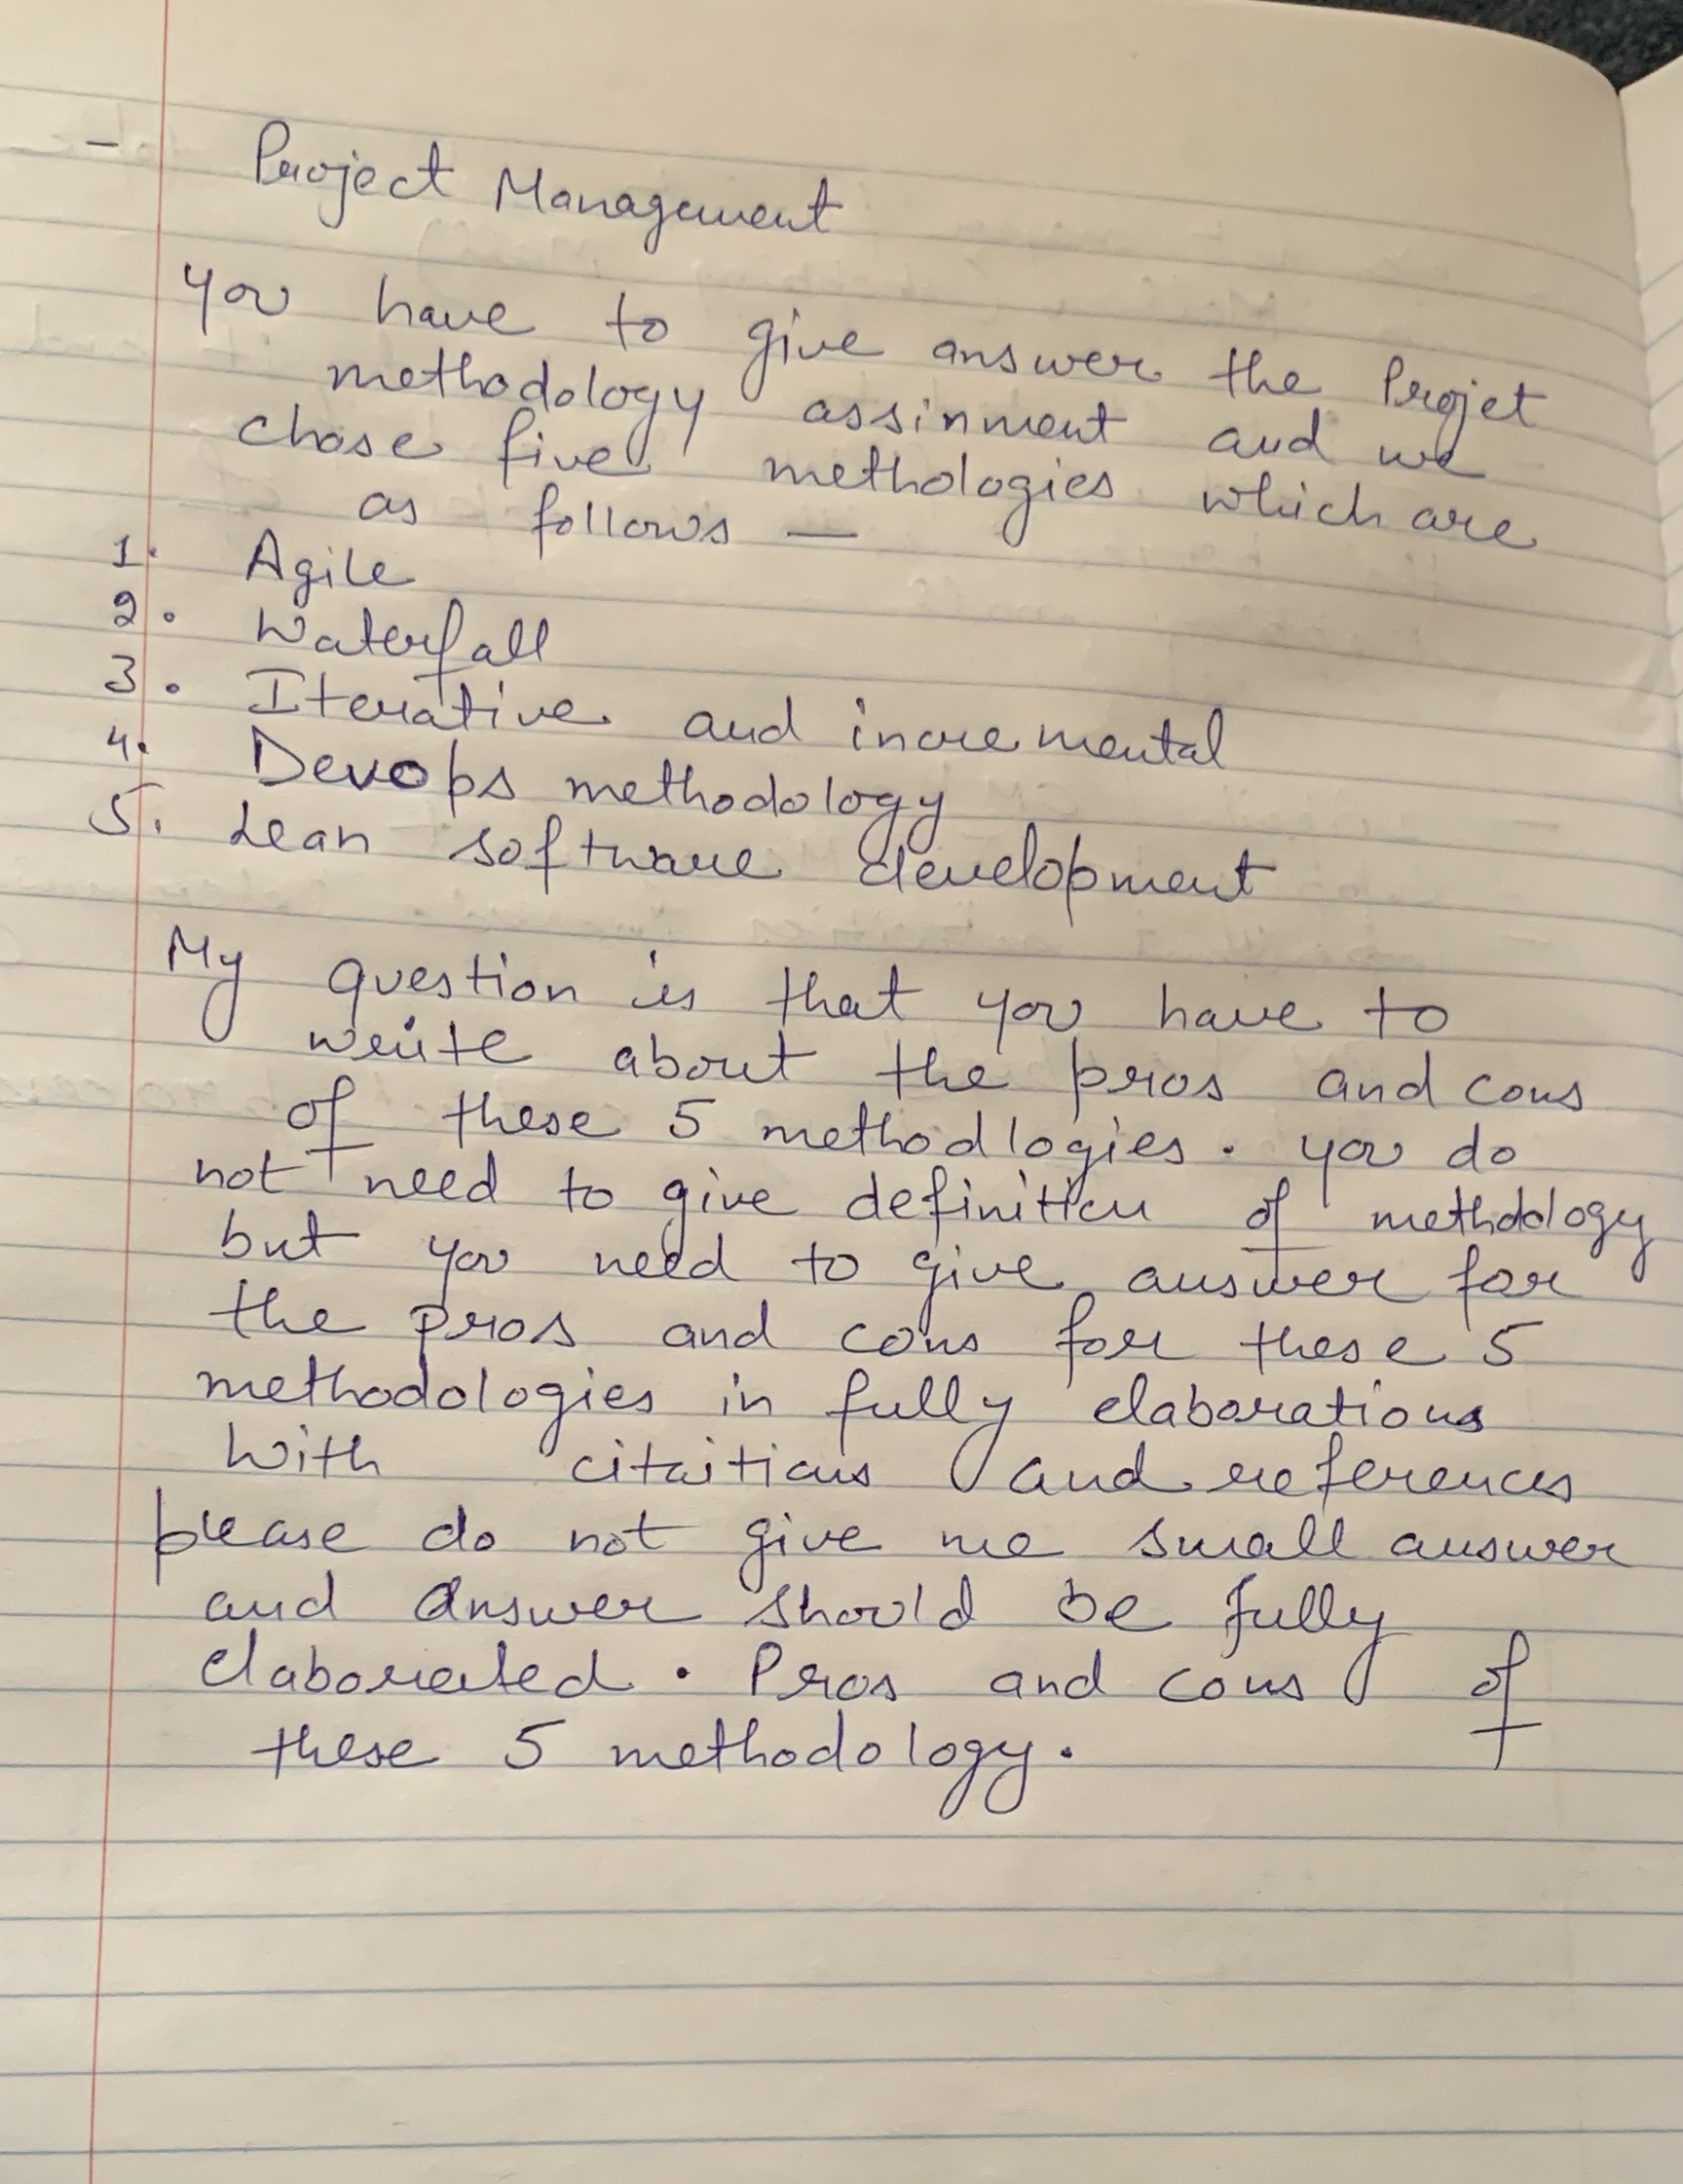 - Project Management
you have to give answer the Projet
methodology assinment and we
chose five methologies which are
as follows —
1. Agile
2. Waterfall
3. Iterative and incremental
4. Devops methodology
5. Lean software development
My question is that you have to
write about the pros and cons
of these 5 methodlogies. you do
not need to give definition of methdology
but you need to give answer for
the pros and cons for these 5
methodologies in fully elaborations
with citaitions and references
please do not give me small answer
and answer should be fully
elaborated. Pros and cons of
these 5 methodology.